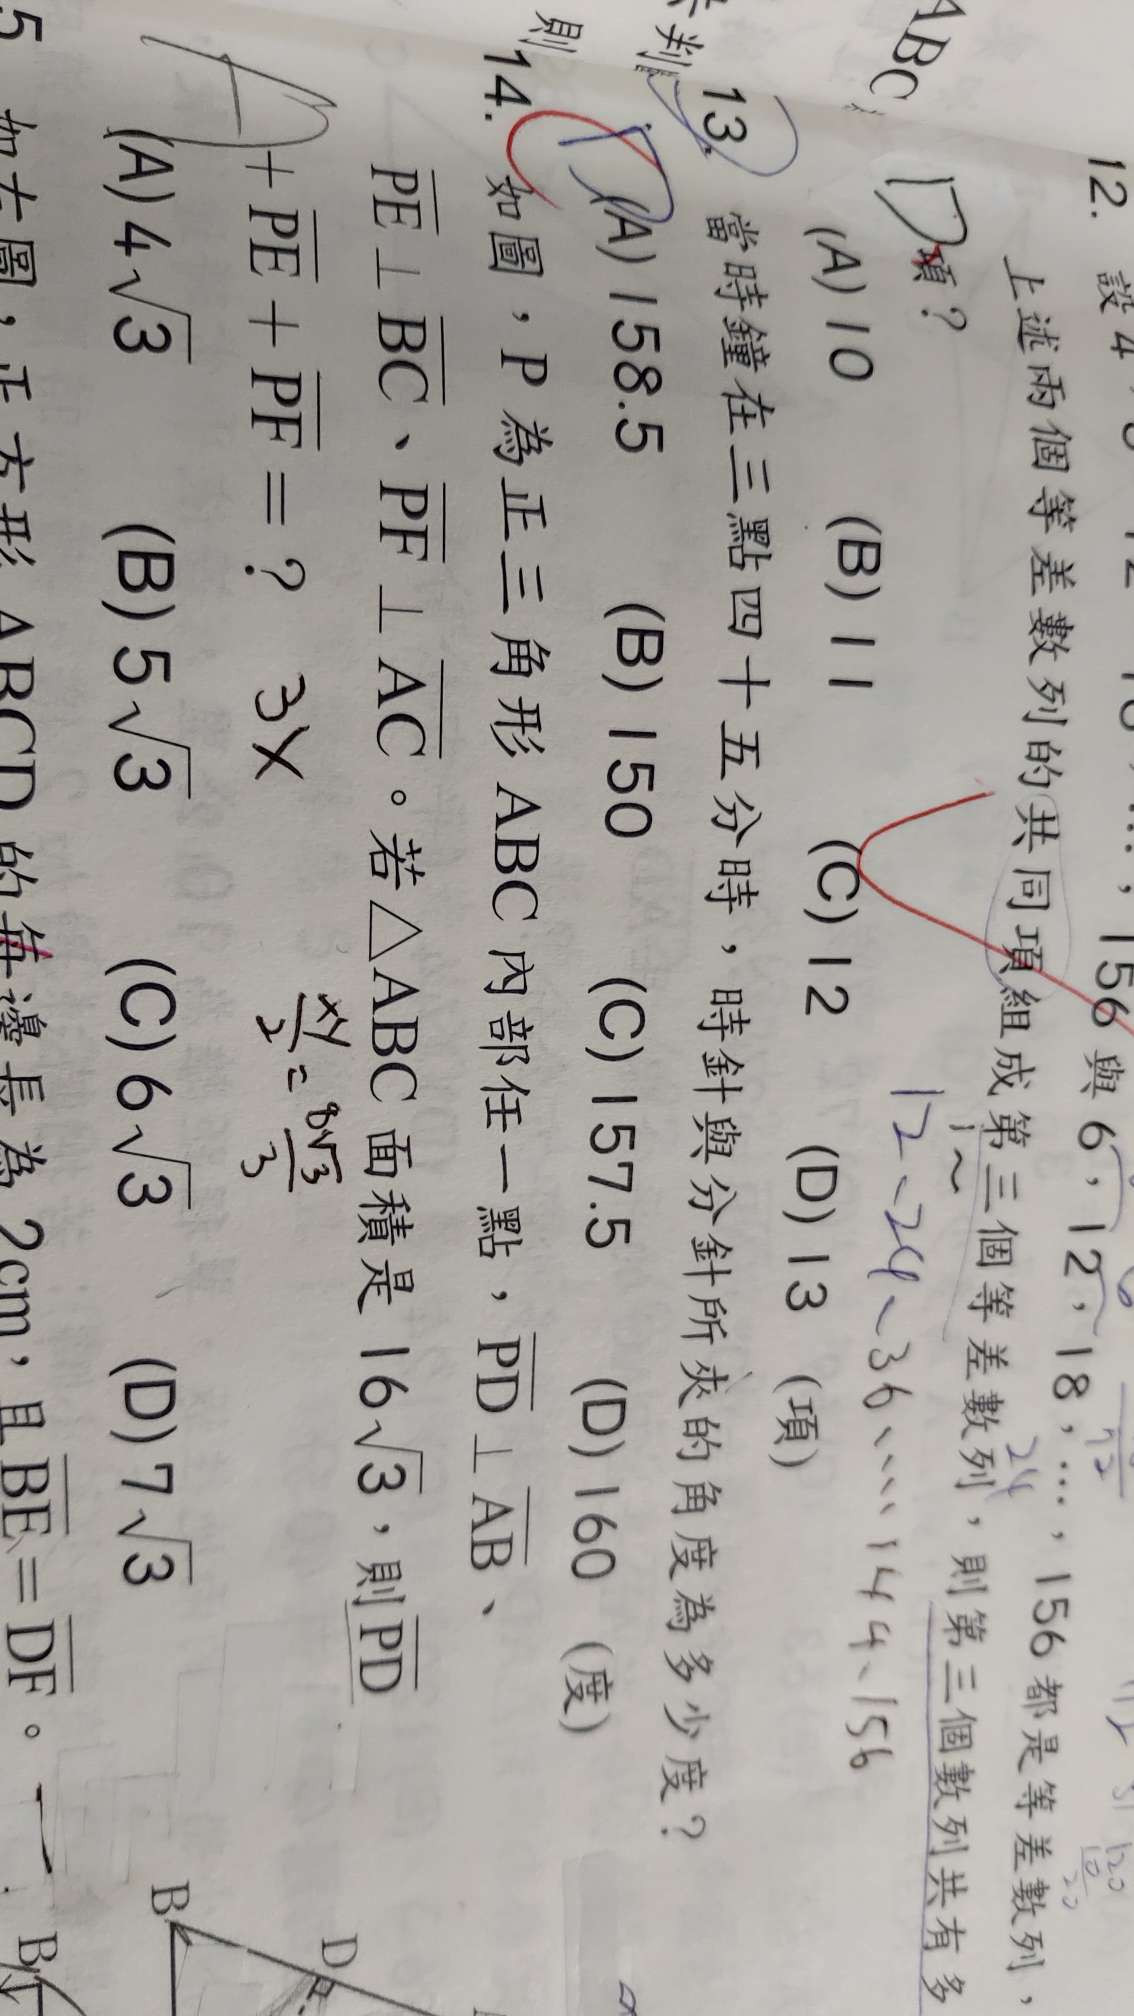 ABC
12. 設 4, 8, 12, 16, …, 156 與 6, 12, 18, …, 156 都是等差數列,
上述兩個等差數列的共同項組成第三個等差數列,則第三個數列共有多
項?
12、24、36、…144、156
24
(A) 10 (B) 11 (C) 12 (D) 13 (項)
13. 當時鐘在三點四十五分時,時針與分針所夾的角度為多少度?
(A) 158.5 (B) 150 (C) 157.5 (D) 160 (度)
則
14. 如圖,P 為正三角形 ABC 內部任一點,PD ⊥ AB、
PE ⊥ BC、PF ⊥ AC。若△ABC 面積是 16√3,則 PD
+ PE + PF = ? 3X xy/2 = 8√3/3
(A) 4√3 (B) 5√3 (C) 6√3 (D) 7√3
B D
5 如左圖,正方形 ABCD 的每邊長為 2cm,且 BE = DF。
B